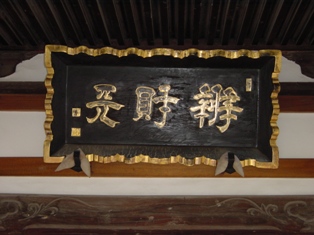 辨財天